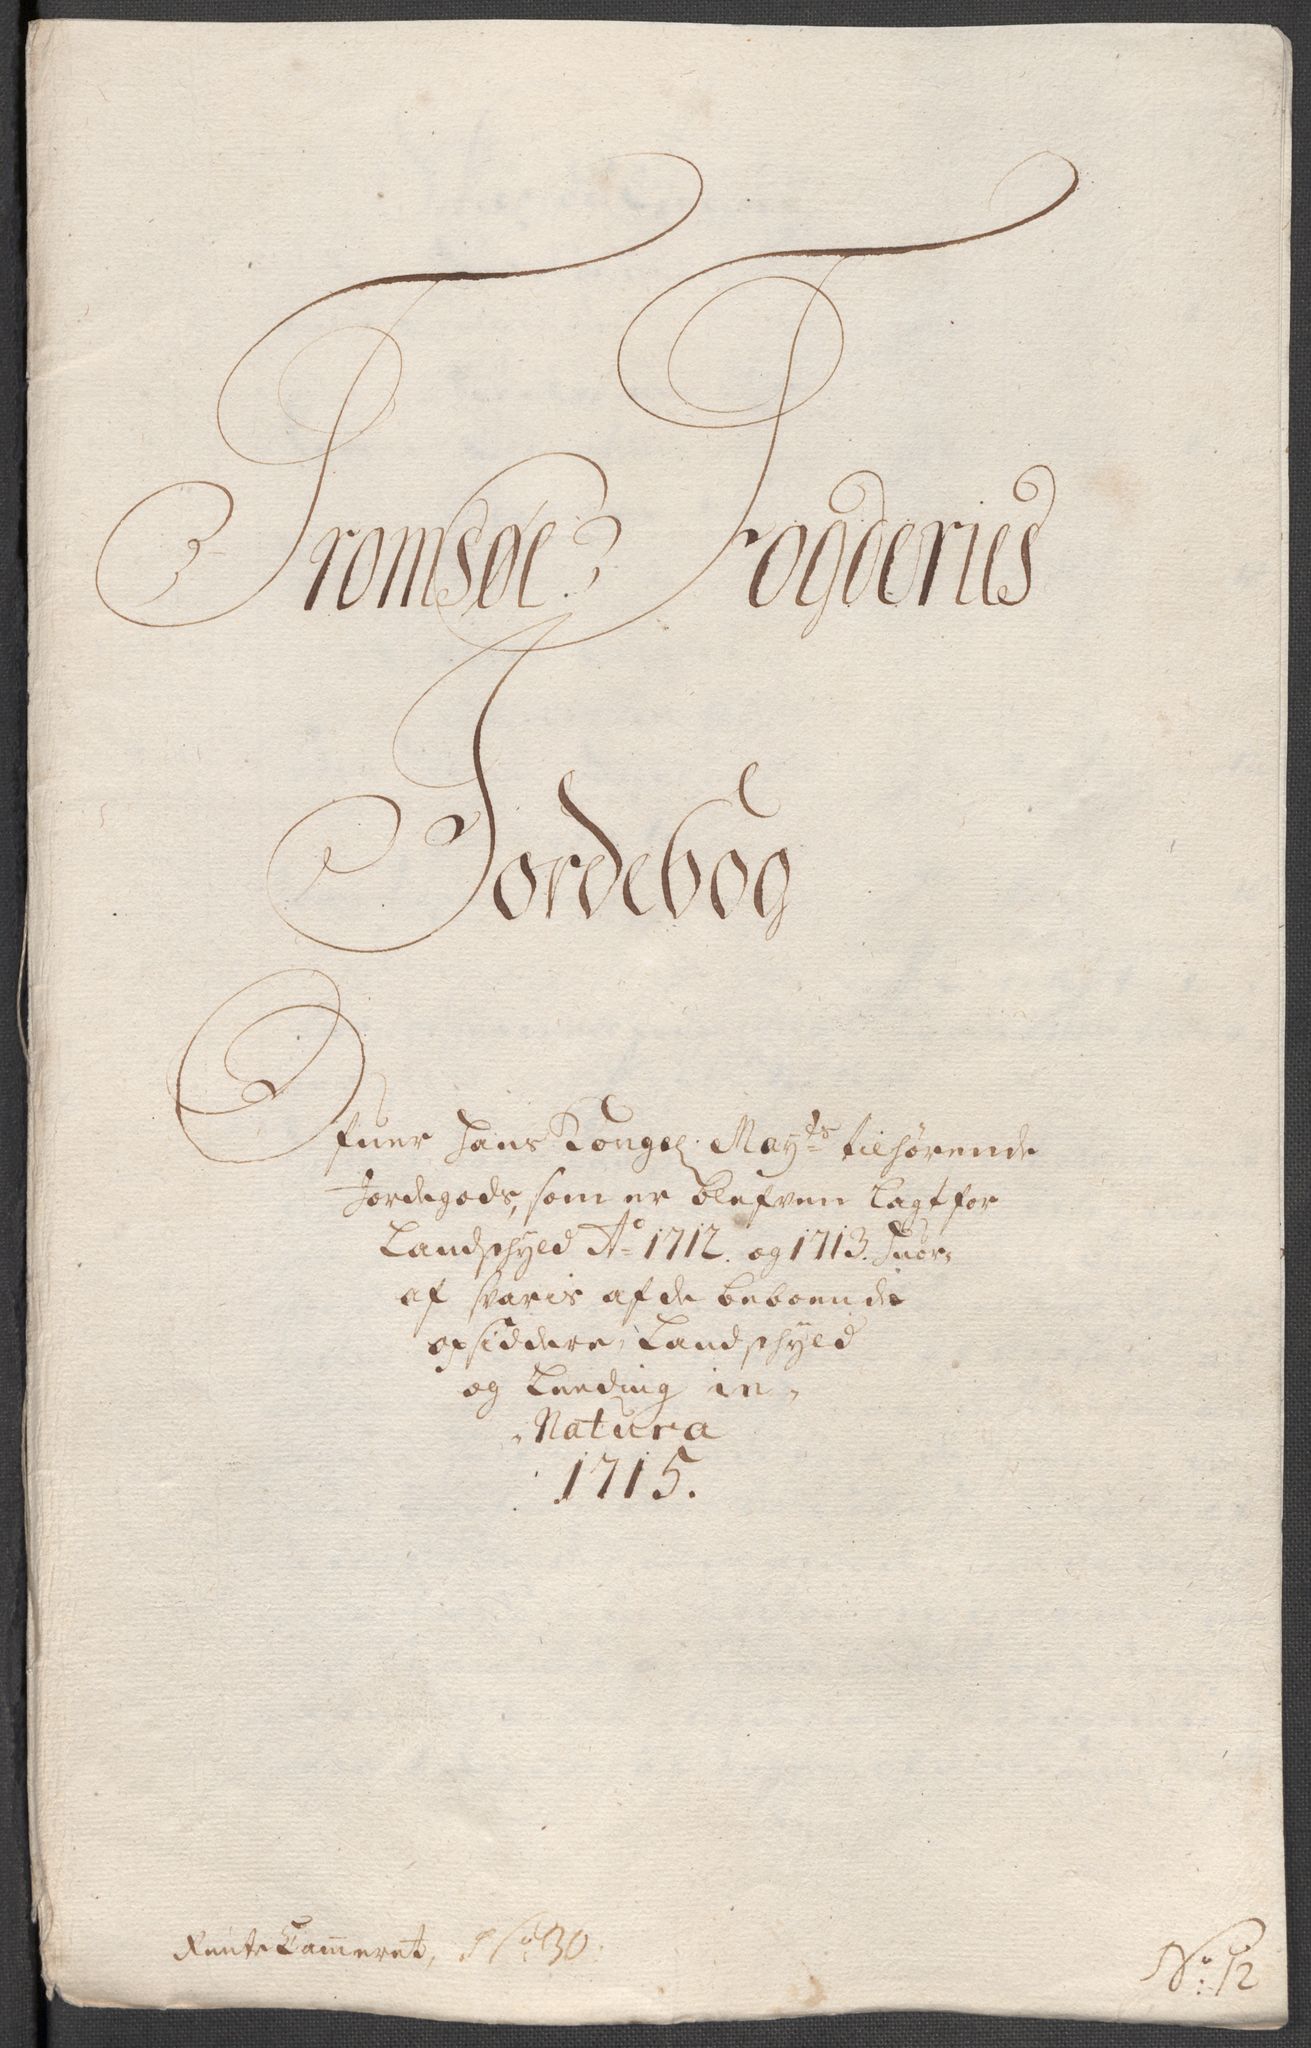 Tromsøe Fogderies
Jordebog
Ofuer Hans Kongel. May:ts tilhørende
Jordegods, som er blefven Lagt for
Landschyld Ao 1712. og 1713. Huor-
af svaris af de beboende
opsiddere, Landschyld
og Leeding in
Natura
1715.
RenteCammeret, No: 30.
No: 12